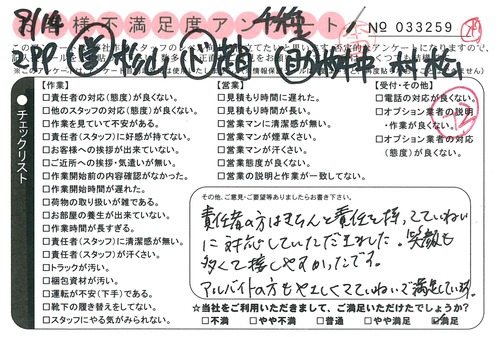 8/14
お客様不満足度アンケート
No 033259
チェックリスト
【作業】
□責任者の対応(態度)が良くない。
□他のスタッフの対応(態度)が良くない。
□作業を見ていて不安がある。
□責任者(スタッフ)に好感が持てない。
□お客様への挨拶が出来ていない。
□ご近所への挨拶・気遣いが無い。
□作業開始前の内容確認がなかった。
□作業開始時間が遅れた。
□荷物の取り扱いが雑である。
□お部屋の養生が出来ていない。
□作業時間が長すぎる。
□責任者(スタッフ)に清潔感が無い。
□責任者(スタッフ)が汗くさい。
□トラックが汚い。
□梱包資材が汚い。
□運転が不安(下手)である。
□靴下の履き替えをしてない。
□スタッフにやる気がみられない。
【営業】
□見積もり時間に遅れた。
□見積もり時間が長い。
□営業マンに清潔感が無い。
□営業マンが煙草くさい。
□営業マンが汗くさい。
□営業態度が良くない。
□営業の説明と作業が一致してない。
【受付・その他】
□電話の対応が良くない。
□オプション業者の説明・作業が良くない。
□オプション業者の対応(態度)が良くない。
その他、ご意見・ご要望等ありましたらお書き下さい。
責任者の方はきちんと責任を持ってていねい
に対応していただきました。笑顔も
多くて接しやすかったです。
アルバイトの方もやさしくてていねいで満足しています。
☆当社をご利用いただきまして、ご満足いただけたでしょうか?
□不満 □やや不満 □普通 □やや満足 ☑満足